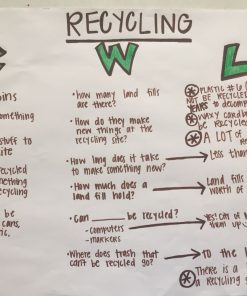 RECYCLING
W L
bins
something
stuff to
ite
recycled
mething
ecycling
be
cans,
nc.
• how many land fills
are there?
• How do they make
new things at the
recycling site?
• How long does it take
to make something new?
• How much does a
land fill hold?
• Can ______ be recycled?
-computers
-markers
• Where does trash that
can't be recycled go?
PLASTIC #6
NOT BE RECYCLED
YEARS to decomp
WAXY CARDB
BE RECYCLE
A LOT
Less than
Land fills
worth of
Yes! can
them up
to the
There is a
a recycling